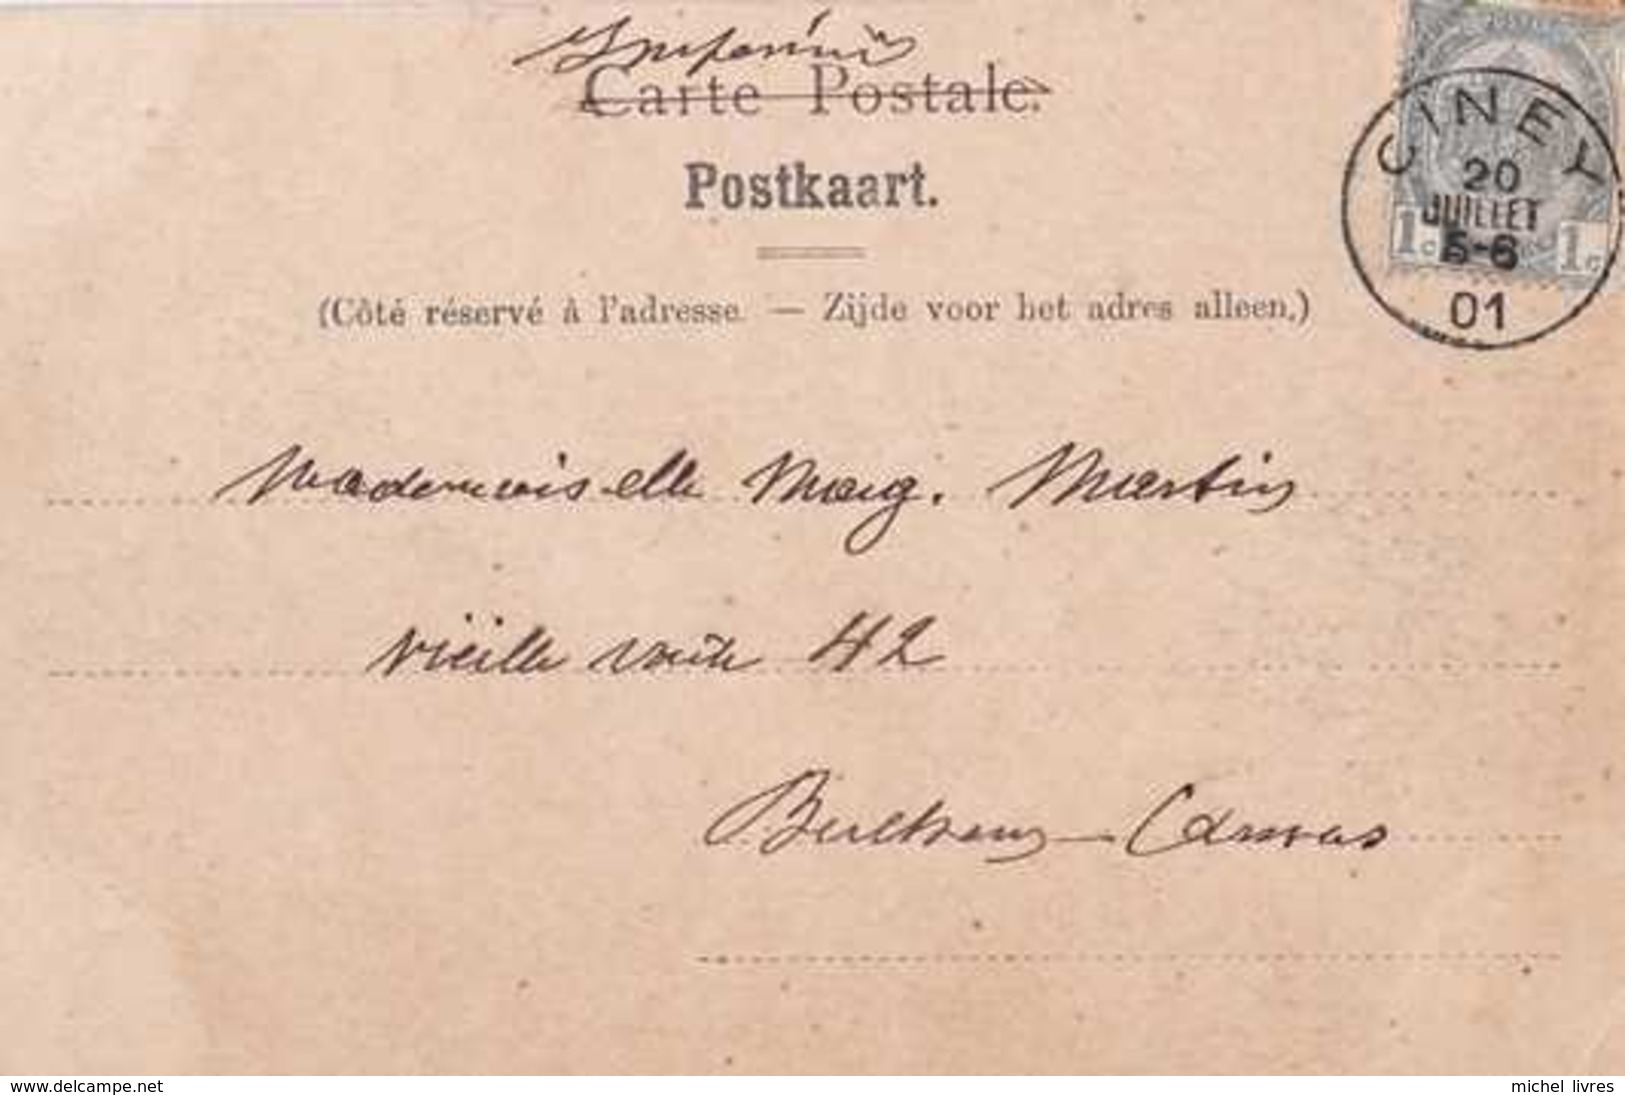 Imprimé
Carte Postale.
Postkaart.
(Côté réservé à l'adresse. — Zijde voor het adres alleen.)
CINEY
20
JUILLET
5-6
01
1c 1c
Mademoiselle Marg. Martin
Vieille voie 42
www.delcampe.net
michel_livres